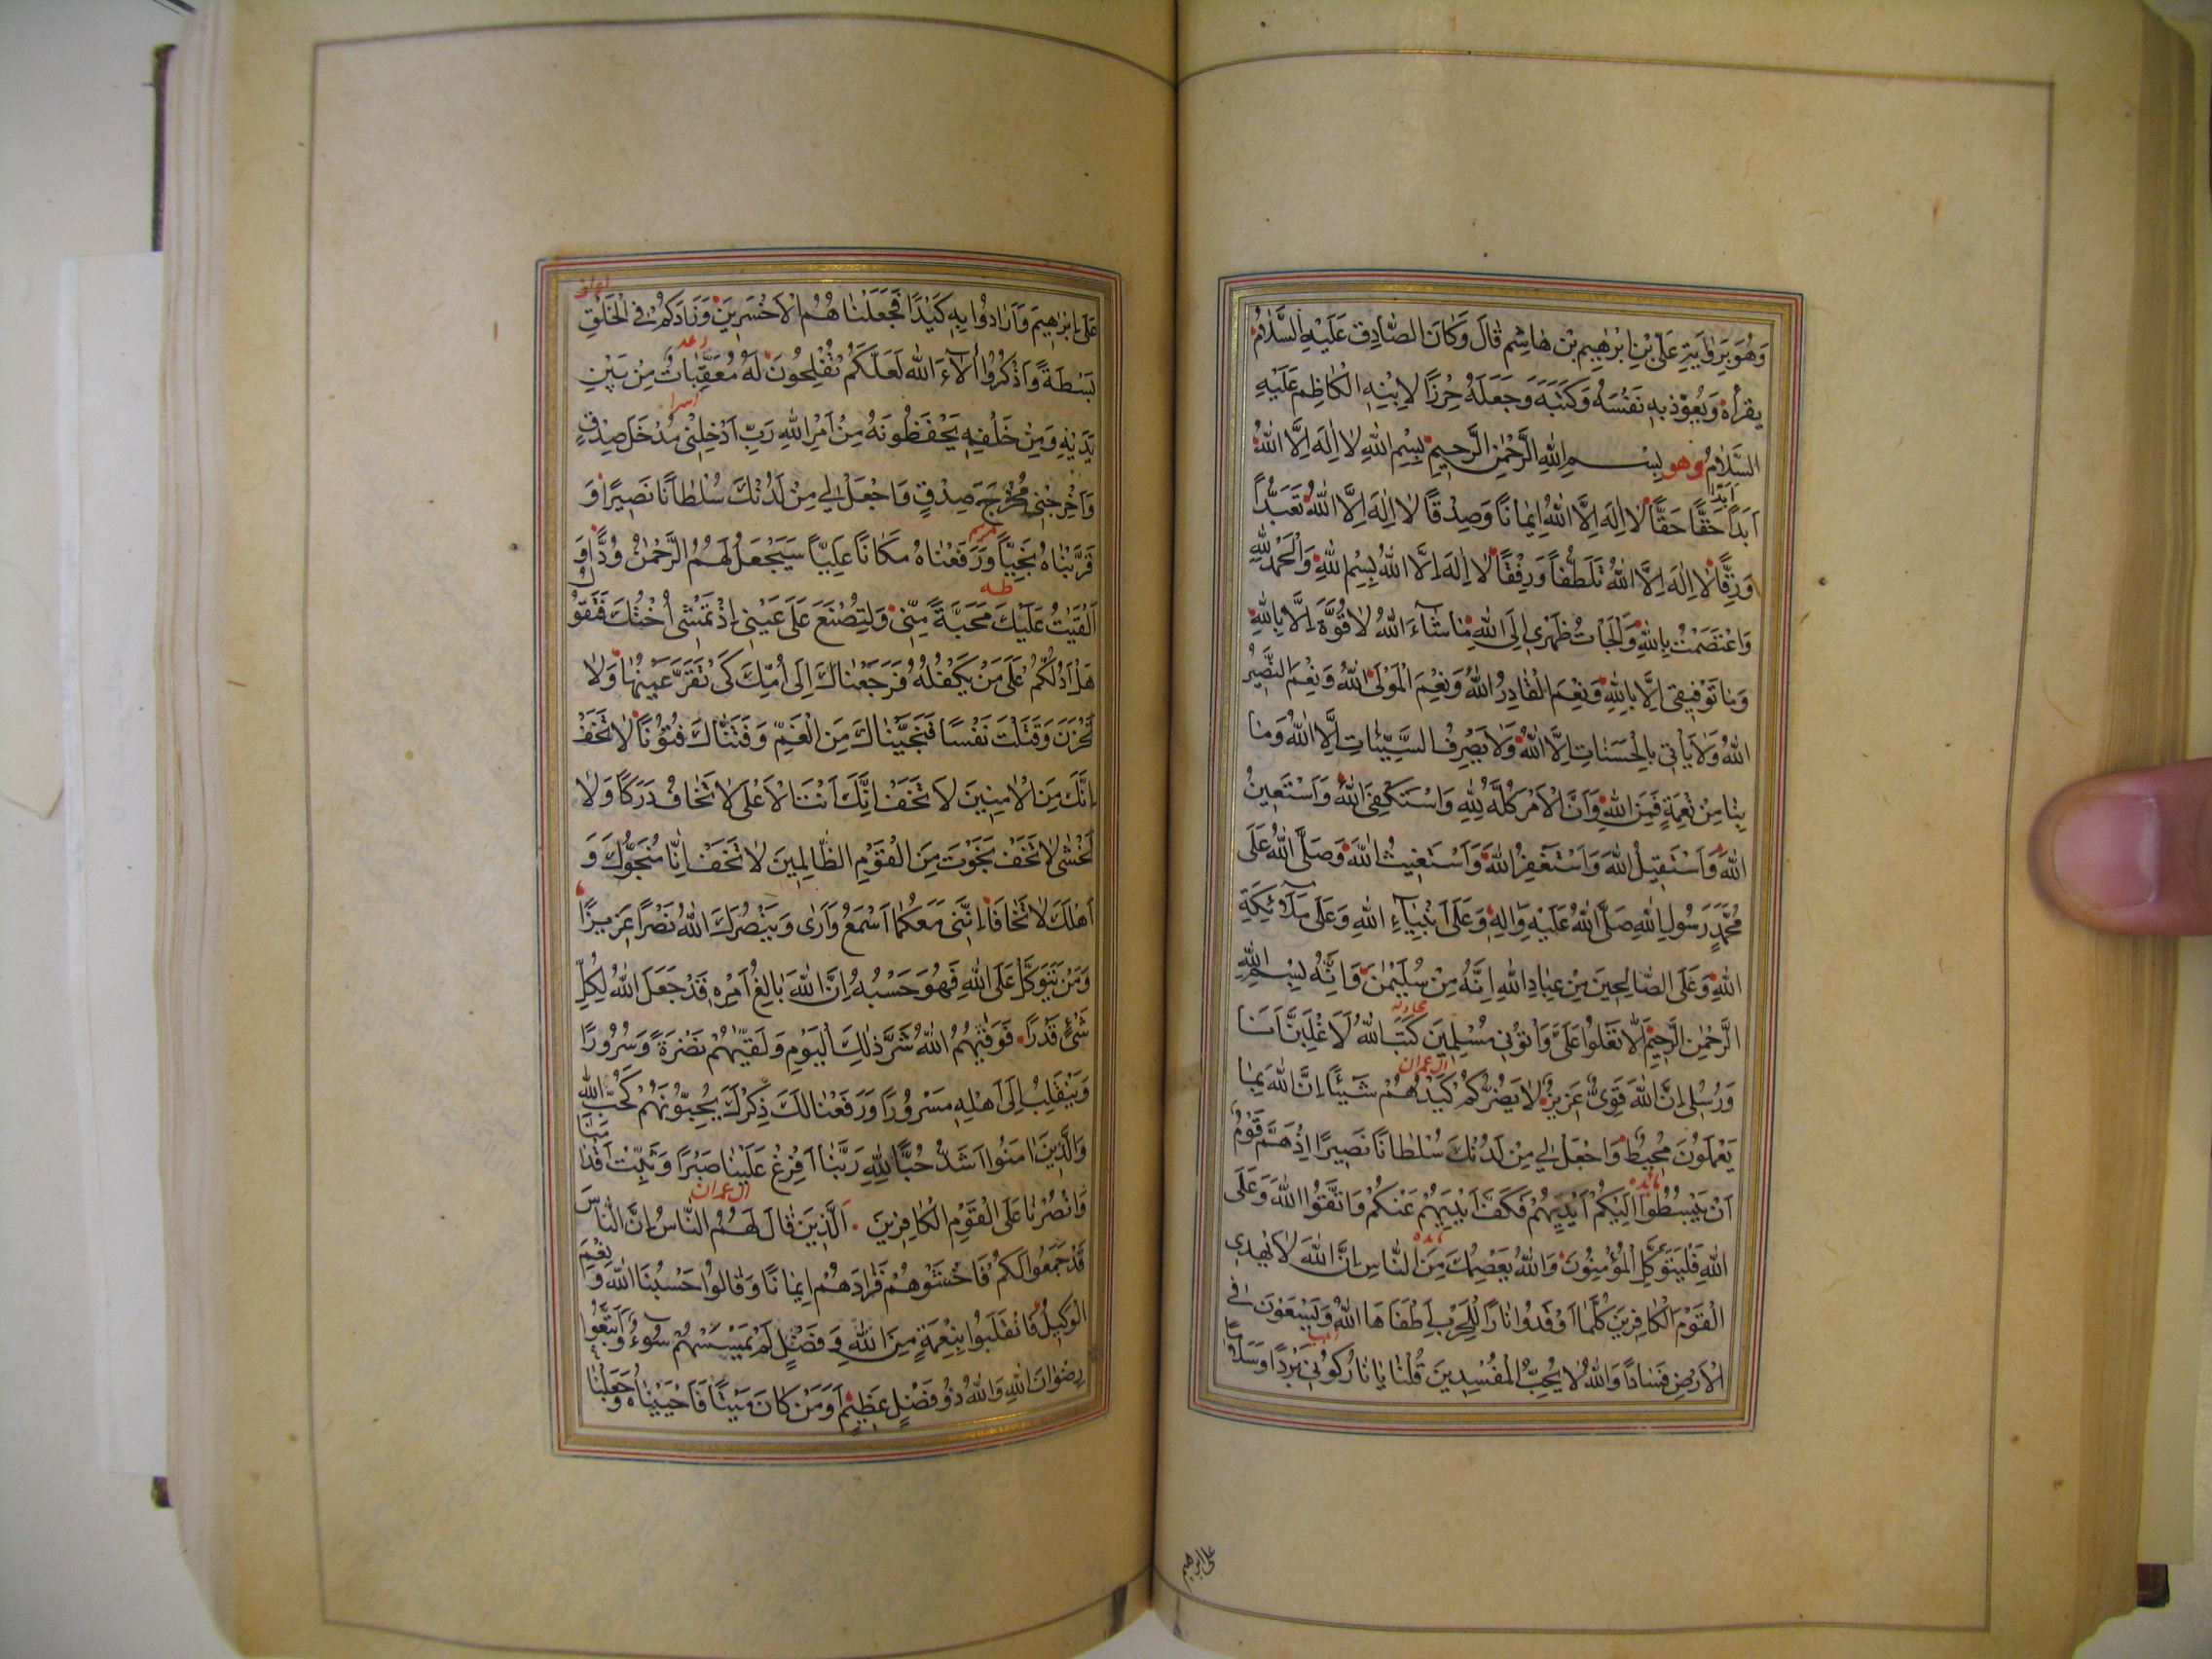 وَهُوَ بِرِوٰايَةِ عَلِيِّ بْنِ اِبْرٰهِيمِ بْنِ هٰاشِمٍ قٰالَ وَكٰانَ الصّٰادِقُ عَلَيْهِ السَّلٰامُ
يَقْرَأُهُ وَيُعَوِّذُ بِهِ نَفْسَهُ وَكَتَبَهُ وَجَعَلَهُ حِرْزًا لِابْنِهِ الْكٰاظِمِ عَلَيْهِ
السَّلٰامُ وهو بِسْمِ اللهِ الرَّحْمٰنِ الرَّحِيمِ بِسْمِ اللهِ لٰا اِلٰهَ اِلَّا اللهُ
اَبَدًا
اَبَدًا حَقًّا حَقًّا لٰا اِلٰهَ اِلَّا اللهُ اِيمٰانًا وَصِدْقًا لٰا اِلٰهَ اِلَّا اللهُ تَعَبُّدًا
وَرِقًّا لٰا اِلٰهَ اِلَّا اللهُ تَلَطُّفًا وَرِفْقًا لٰا اِلٰهَ اِلَّا اللهُ بِسْمِ اللهِ وَالْحَمْدُ لِلّٰهِ
وَاعْتَصَمْتُ بِاللهِ وَاَلْجَأْتُ ظَهْرِي اِلَى اللهِ مٰا شٰاءَ اللهُ لٰا قُوَّةَ اِلَّا بِاللهِ
وَمٰا تَوْفِيقِي اِلَّا بِاللهِ وَنِعْمَ الْقٰادِرُ اللهُ وَنِعْمَ الْمَوْلَى اللهُ وَنِعْمَ النَّصِيرُ
اللهُ وَلٰا يَأْتِي بِالْحَسَنٰاتِ اِلَّا اللهُ وَلٰا يَصْرِفُ السَّيِّئٰاتِ اِلَّا اللهُ وَمٰا
بِنٰا مِنْ نِعْمَةٍ فَمِنَ اللهِ وَاَنَّ الْاَمْرَ كُلَّهُ لِلّٰهِ وَاَسْتَكْفِي اللهَ وَاَسْتَعِينُ
اللهَ وَاَسْتَقِيلُ اللهَ وَاَسْتَغْفِرُ اللهَ وَاَسْتَغِيثُ اللهَ وَصَلَّى اللهُ عَلَى
مُحَمَّدٍ رَسُولِ اللهِ صَلَّى اللهُ عَلَيْهِ وَاٰلِهِ وَعَلَى اَنْبِيٰاءِ اللهِ وَعَلَى مَلٰائِكَةِ
اللهِ وَعَلَى الصّٰالِحِينَ مِنْ عِبٰادِ اللهِ اِنَّهُ مِنْ سُلَيْمٰنَ وَاِنَّهُ بِسْمِ اللهِ
الرَّحْمٰنِ الرَّحِيمِ اَلَّا تَعْلُوا عَلَيَّ وَأْتُونِي مُسْلِمِينَ كَتَبَ اللهُ لَاَغْلِبَنَّ اَنَا
وَرُسُلِي اِنَّ اللهَ قَوِيٌّ عَزِيزٌ لٰا يَضُرُّكُمْ كَيْدُهُمْ شَيْئًا اِنَّ اللهَ بِمٰا
يَعْمَلُونَ مُحِيطٌ وَاجْعَلْ لِي مِنْ لَدُنْكَ سُلْطٰانًا نَصِيرًا اِذْ هَمَّ قَوْمٌ
اَنْ يَبْسُطُوا اِلَيْكُمْ اَيْدِيَهُمْ فَكَفَّ اَيْدِيَهُمْ عَنْكُمْ وَاتَّقُوا اللهَ وَعَلَى
اللهِ فَلْيَتَوَكَّلِ الْمُؤْمِنُونَ وَاللهُ يَعْصِمُكَ مِنَ النّٰاسِ اِنَّ اللهَ لٰا يَهْدِي
الْقَوْمَ الْكٰافِرِينَ كُلَّمٰا اَوْقَدُوا نٰارًا لِلْحَرْبِ اَطْفَأَهَا اللهُ وَيَسْعَوْنَ فِي
الْاَرْضِ فَسٰادًا وَاللهُ لٰا يُحِبُّ الْمُفْسِدِينَ قُلْنٰا يٰا نٰارُ كُونِي بَرْدًا وَسَلٰامًا
على ابرهيم
اعراف
عَلَى اِبْرٰهِيمَ وَاَرٰادُوا بِهِ كَيْدًا فَجَعَلْنٰاهُمُ الْاَخْسَرِينَ وَزٰادَكُمْ فِي الْخَلْقِ
رعد
بَسْطَةً وَاذْكُرُوا اٰلٰاءَ اللهِ لَعَلَّكُمْ تُفْلِحُونَ لَهُ مُعَقِّبٰاتٌ مِنْ بَيْنِ
اسرا
يَدَيْهِ وَمِنْ خَلْفِهِ يَحْفَظُونَهُ مِنْ اَمْرِ اللهِ رَبِّ اَدْخِلْنِي مُدْخَلَ صِدْقٍ
وَاَخْرِجْنِي مُخْرَجَ صِدْقٍ وَاجْعَلْ لِي مِنْ لَدُنْكَ سُلْطٰانًا نَصِيرًا وَ
مريم
قَرَّبْنٰاهُ نَجِيًّا وَرَفَعْنٰاهُ مَكٰانًا عَلِيًّا سَيَجْعَلُ لَهُمُ الرَّحْمٰنُ وُدًّا وَ
طه
اَلْقَيْتُ عَلَيْكَ مَحَبَّةً مِنِّي وَلِتُصْنَعَ عَلَى عَيْنِي اِذْ تَمْشِي اُخْتُكَ فَتَقُولُ
هَلْ اَدُلُّكُمْ عَلَى مَنْ يَكْفُلُهُ فَرَجَعْنٰاكَ اِلَى اُمِّكَ كَيْ تَقَرَّ عَيْنُهٰا وَلٰا
تَحْزَنَ وَقَتَلْتَ نَفْسًا فَنَجَّيْنٰاكَ مِنَ الْغَمِّ وَفَتَنّٰاكَ فُتُونًا لٰا تَخَفْ
اِنَّكَ مِنَ الْاٰمِنِينَ لٰا تَخَفْ اِنَّكَ اَنْتَ الْاَعْلَى لٰا تَخٰافُ دَرَكًا وَلٰا
تَخْشَى لٰا تَخَفْ نَجَوْتَ مِنَ الْقَوْمِ الظّٰالِمِينَ لٰا تَخَفْ اِنّٰا مُنَجُّوكَ وَ
اَهْلَكَ لٰا تَخٰافٰا اِنَّنِي مَعَكُمٰا اَسْمَعُ وَاَرٰى وَيَنْصُرَكَ اللهُ نَصْرًا عَزِيزًا
وَمَنْ يَتَوَكَّلْ عَلَى اللهِ فَهُوَ حَسْبُهُ اِنَّ اللهَ بٰالِغُ اَمْرِهِ قَدْ جَعَلَ اللهُ لِكُلِّ
شَيْءٍ قَدْرًا فَوَقٰيهُمُ اللهُ شَرَّ ذٰلِكَ الْيَوْمِ وَلَقّٰيهُمْ نَضْرَةً وَسُرُورًا
وَيَنْقَلِبُ اِلَى اَهْلِهِ مَسْرُورًا وَرَفَعْنٰا لَكَ ذِكْرَكَ يُحِبُّونَهُمْ كَحُبِّ اللهِ
وَالَّذِينَ اٰمَنُوا اَشَدُّ حُبًّا لِلّٰهِ رَبَّنٰا اَفْرِغْ عَلَيْنٰا صَبْرًا وَثَبِّتْ اَقْدٰامَنٰا
ال عمران
وَانْصُرْنٰا عَلَى الْقَوْمِ الْكٰافِرِينَ اَلَّذِينَ قٰالَ لَهُمُ النّٰاسُ اِنَّ النّٰاسَ
قَدْ جَمَعُوا لَكُمْ فَاخْشَوْهُمْ فَزٰادَهُمْ اِيمٰانًا وَقٰالُوا حَسْبُنَا اللهُ وَنِعْمَ
الْوَكِيلُ فَانْقَلَبُوا بِنِعْمَةٍ مِنَ اللهِ وَفَضْلٍ لَمْ يَمْسَسْهُمْ سُوءٌ وَاتَّبَعُوا
رِضْوٰانَ اللهِ وَاللهُ ذُو فَضْلٍ عَظِيمٍ اَوَمَنْ كٰانَ مَيْتًا فَاَحْيَيْنٰاهُ وَجَعَلْنٰا